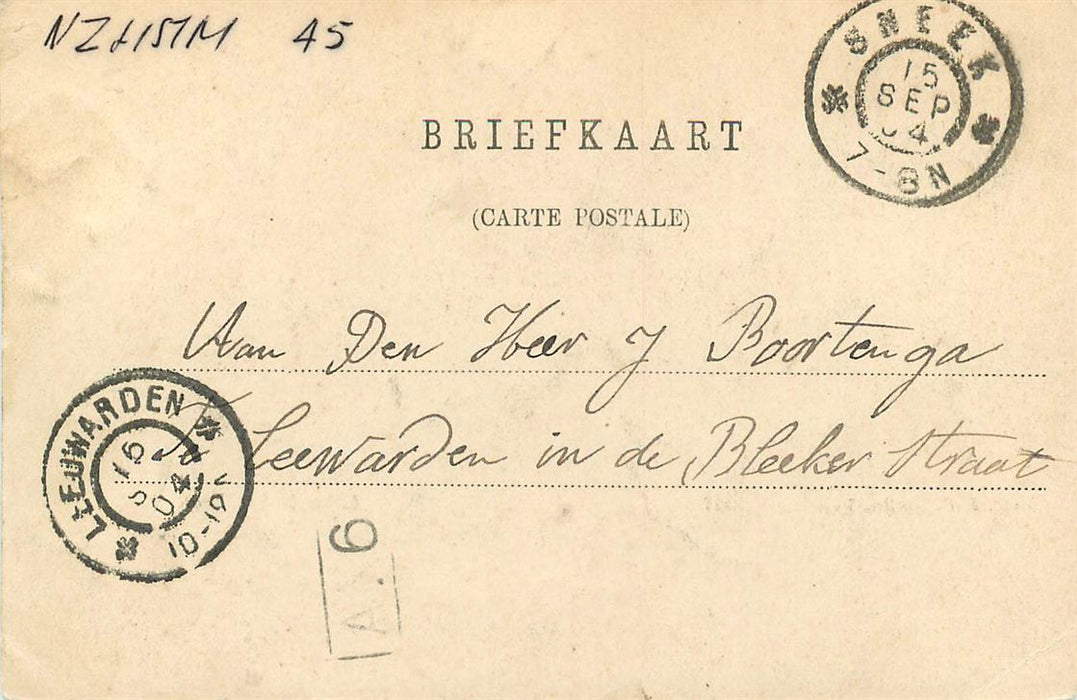 45
SNEEK
15
SEP
04
7-8N
BRIEFKAART
(CARTE POSTALE)
Aan Den Heer J Boortenga
Leewarden in de Bleeker Straat
LEEUWARDEN
04
A.6